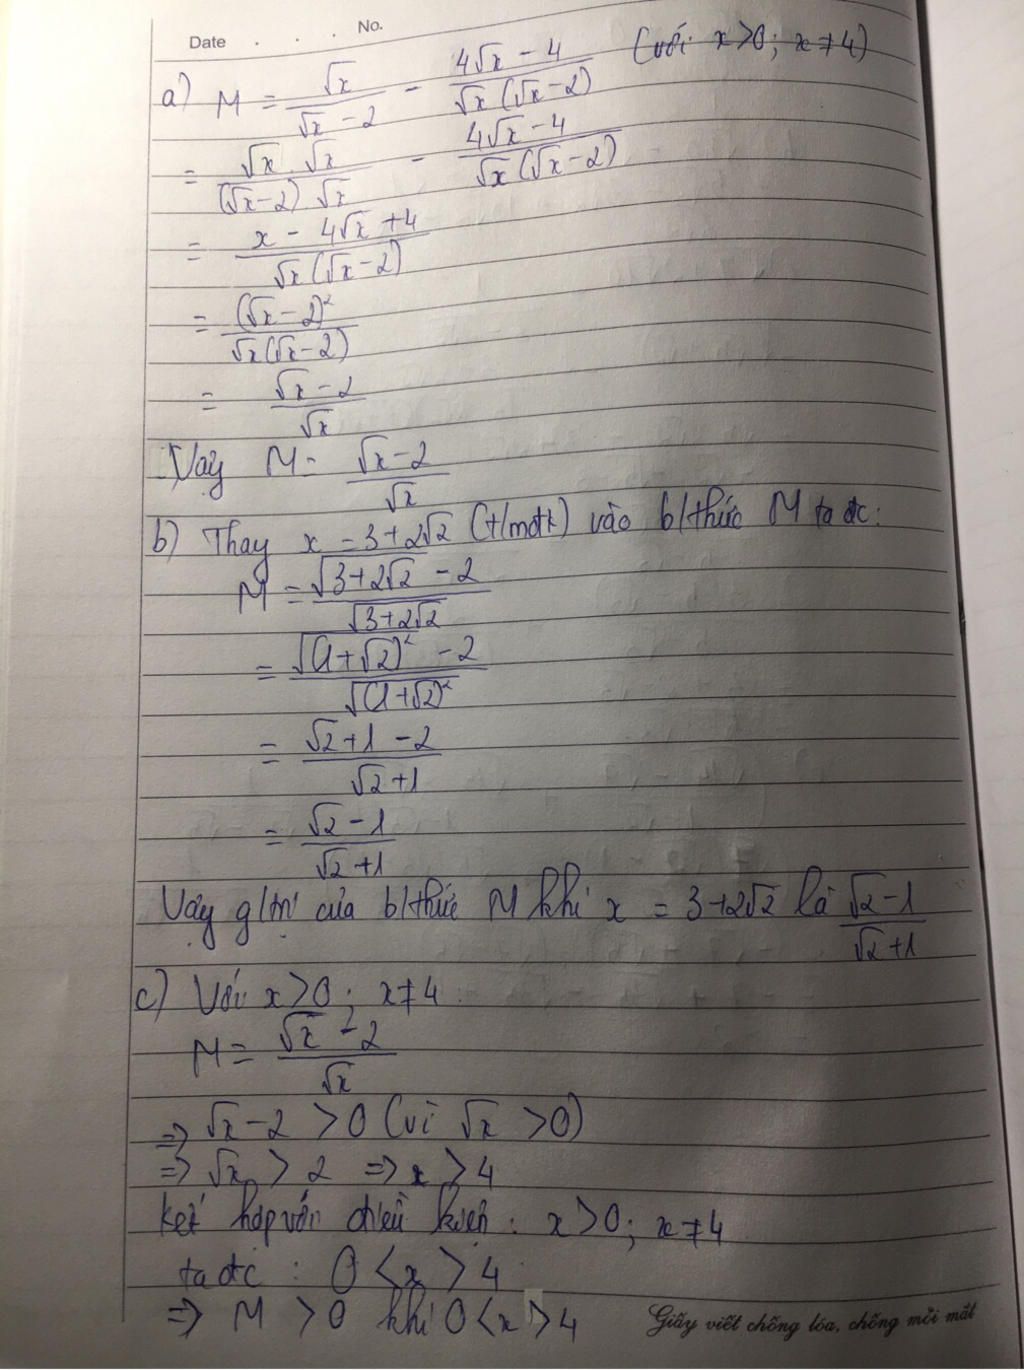 Date . . . No.
a) M = √x/(√x - 2) - (4√x - 4)/(√x(√x-2)) (với x>0; x≠4)
= (√x . √x)/((√x-2) √x) - (4√x-4)/(√x(√x-2))
= (x - 4√x +4)/(√x(√x-2))
= (√x-2)²/(√x(√x-2))
= (√x-2)/√x
Vậy M = (√x-2)/√x
b) Thay x = 3+2√2 (t/mđk) vào b/thức M ta đc:
M = (√(3+2√2) - 2)/√(3+2√2)
= (√(1+√2)² - 2)/√(1+√2)²
= (√2+1-2)/(√2+1)
= (√2-1)/(√2+1)
Vậy g/trị của b/thức M khi x = 3+2√2 là (√2-1)/(√2+1)
c) Với x>0; x≠4:
M = (√x - 2)/√x
=> √x-2 >0 (vì √x >0)
=> √x > 2 => x > 4
kết hợp với điều kiện: x>0; x≠4
ta đc: 0<x>4
=> M >0 khi 0<x>4
Giấy viết chống lóa, chống mỏi mắt